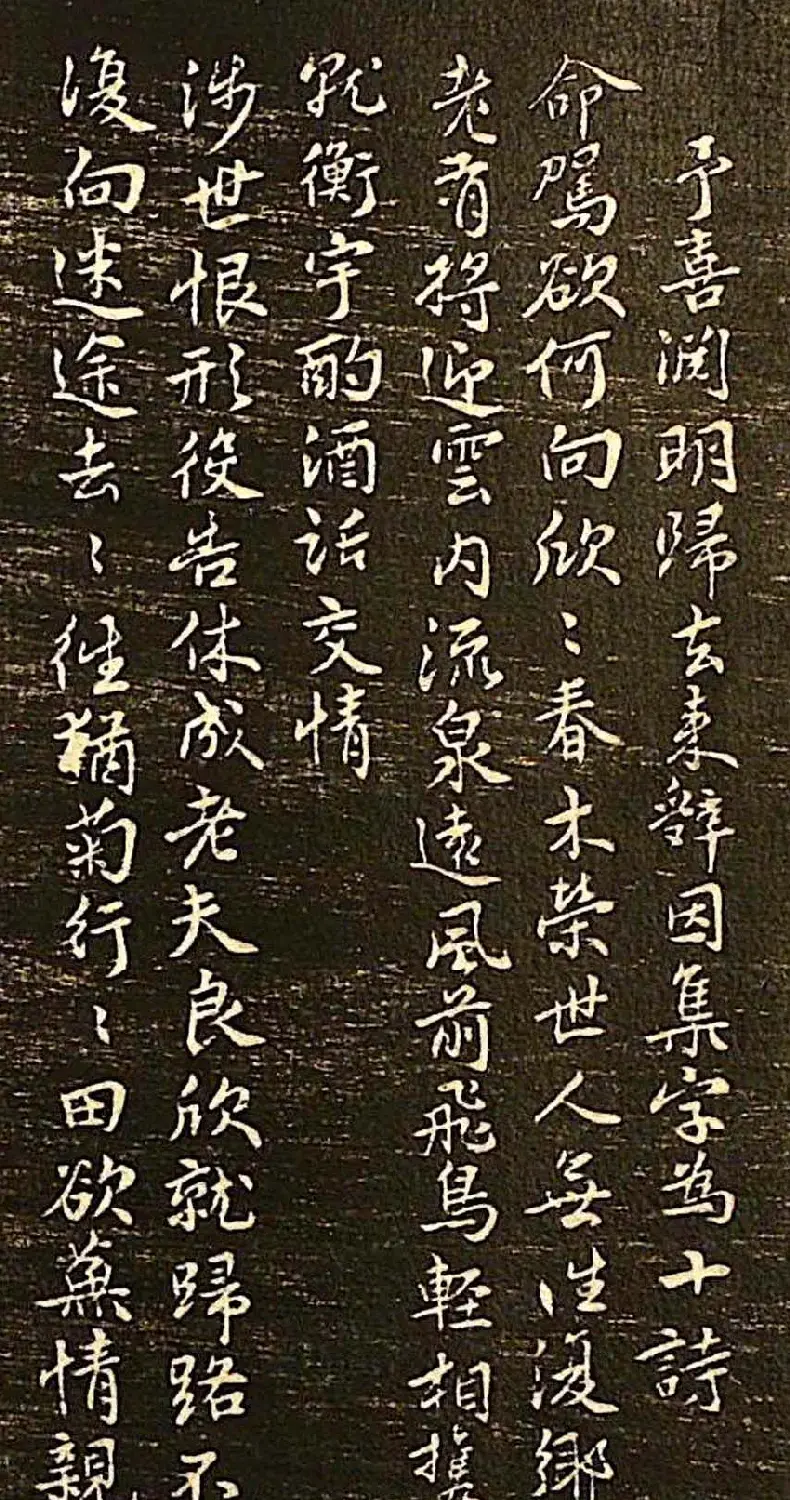 予喜渊明歸去来辭因集字為十詩
命駕欲何向欣〻春木榮世人無往復鄉
老有將迎雲内流泉遠風前飛鳥輕相攜
就衡宇酌酒話交情
涉世恨形役告休成老夫良欣就歸路不
復向迷途去〻徑猶菊行〻田欲蕪情親